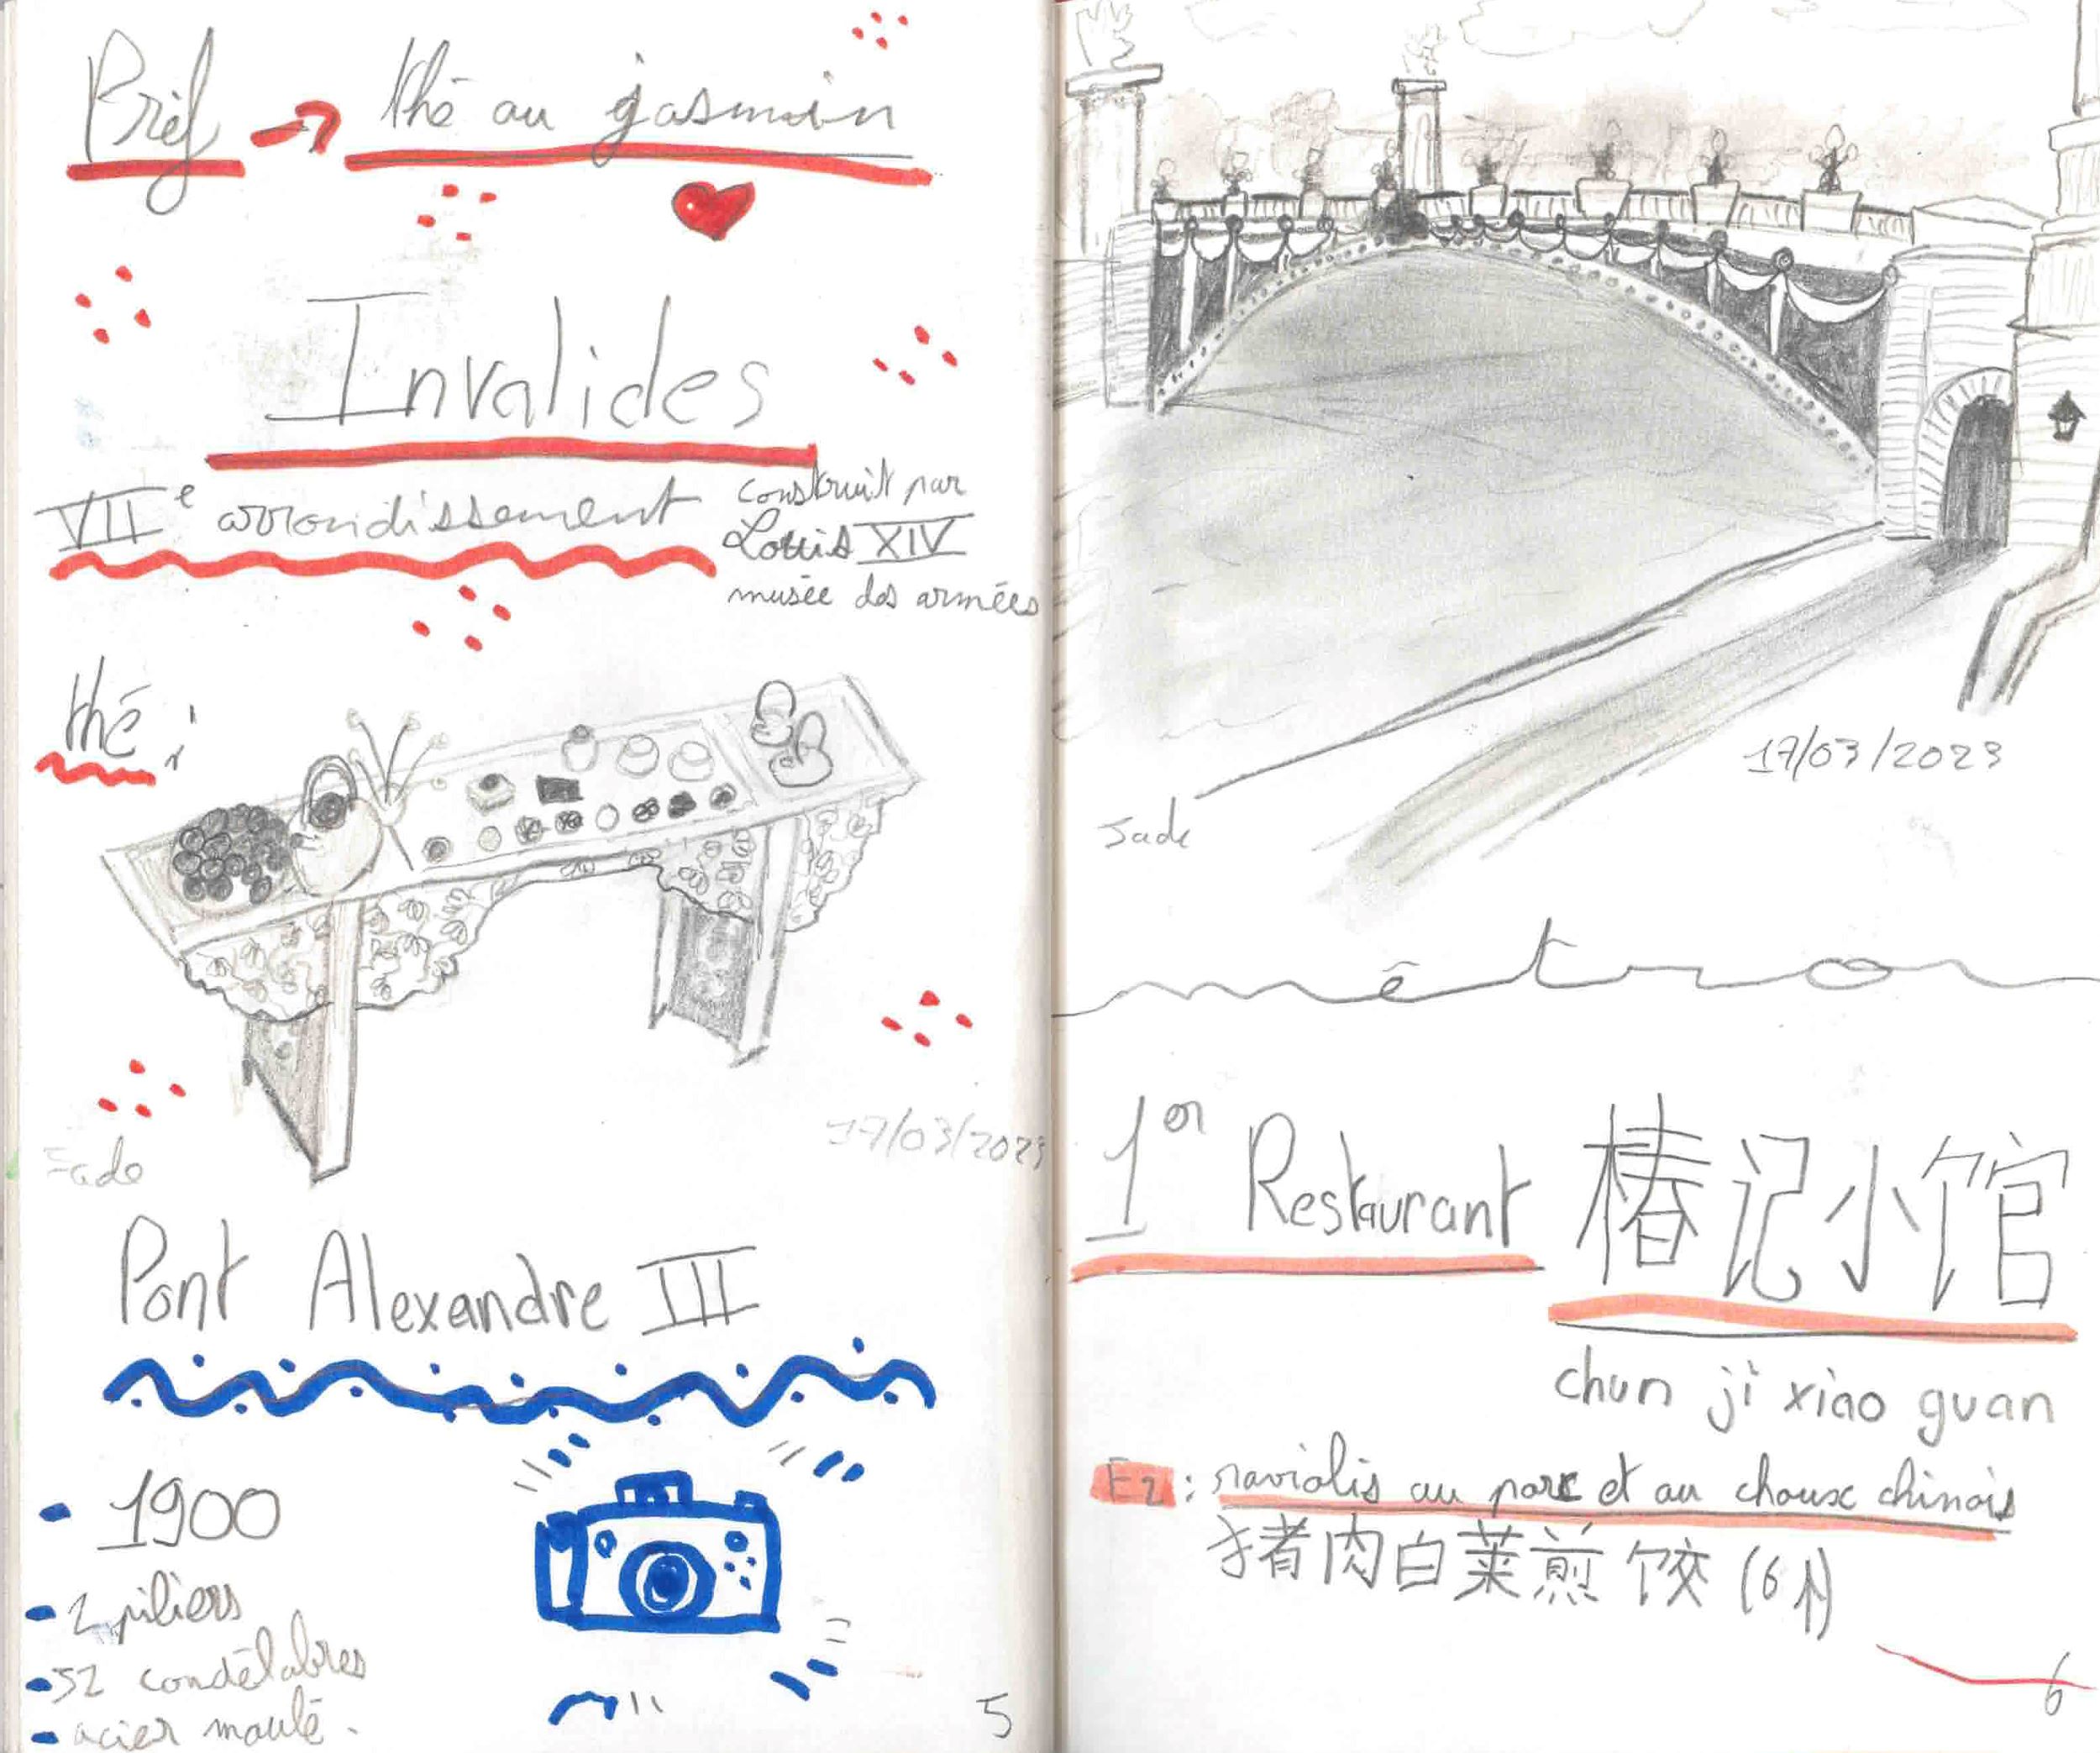 Bref → thé au jasmin
Invalides
VII e arrondissement
construit par
Louis XIV
musée des armées
thé :
Jade
17/03/2023
Pont Alexandre III
- 1900
- 2 piliers
- 32 candélabres
- acier moulé.
5
17/03/2023
Jade
métro
1er Restaurant 椿记小馆
chun ji xiao guan
E2 : raviolis au porc et au choux chinois
猪肉白菜煎饺 (6个)
6